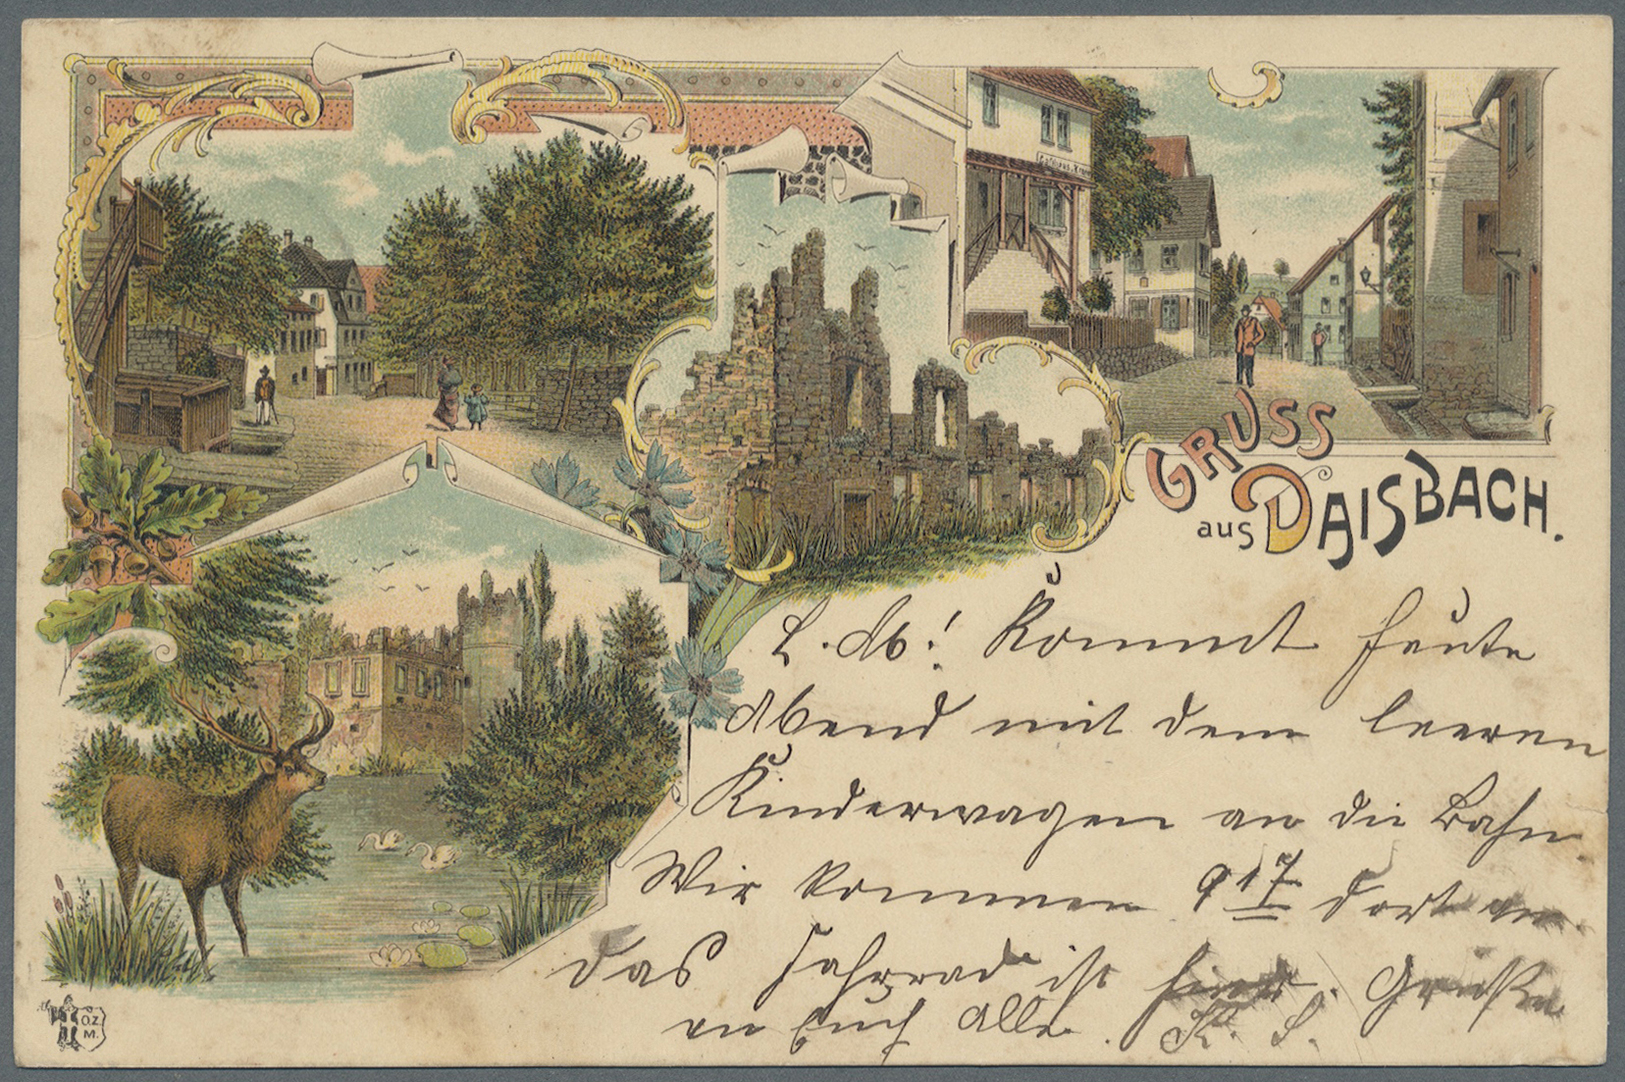 GRUSS
aus DAISBACH.
L. Ab! Kommt heute
Abend mit dem leeren
Kinderwagen an die Bahn.
Wir kommen 9 17 dort an.
das Fahrrad ist hier. Grüße
an Euch Alle. K. S.
O.Z.
M.